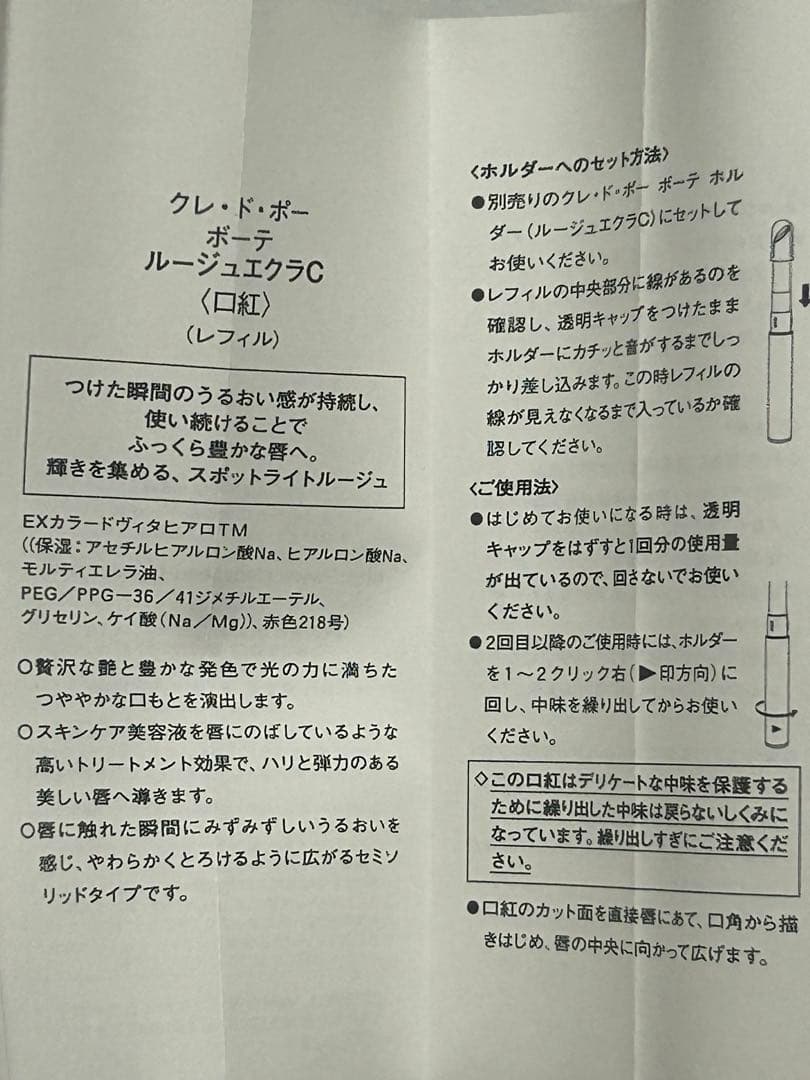 クレ・ド・ポー
ボーテ
ルージュエクラC
〈口紅〉
（レフィル）
つけた瞬間のうるおい感が持続し、
使い続けることで
ふっくら豊かな唇へ。
輝きを集める、スポットライトルージュ
EXカラードヴィタヒアロTM
((保湿：アセチルヒアルロン酸Na、ヒアルロン酸Na、
モルティエレラ油、
PEG／PPG－36／41ジメチルエーテル、
グリセリン、ケイ酸（Na／Mg))、赤色218号）
○贅沢な艶と豊かな発色で光の力に満ちた
つややかな口もとを演出します。
○スキンケア美容液を唇にのばしているような
高いトリートメント効果で、ハリと弾力のある
美しい唇へ導きます。
○唇に触れた瞬間にみずみずしいうるおいを
感じ、やわらかくとろけるように広がるセミソ
リッドタイプです。
〈ホルダーへのセット方法〉
●別売りのクレ・ド・ポー ボーテ ホル
ダー（ルージュエクラC）にセットして
お使いください。
●レフィルの中央部分に線があるのを
確認し、透明キャップをつけたまま
ホルダーにカチッと音がするまでしっ
かり差し込みます。この時レフィルの
線が見えなくなるまで入っているか確
認してください。
〈ご使用法〉
●はじめてお使いになる時は、透明
キャップをはずすと1回分の使用量
が出ているので、回さないでお使い
ください。
●2回目以降のご使用時には、ホルダー
を1～2クリック右（▶印方向）に
回し、中味を繰り出してからお使い
ください。
◇この口紅はデリケートな中味を保護する
ために繰り出した中味は戻らないしくみに
なっています。繰り出しすぎにご注意くだ
さい。
●口紅のカット面を直接唇にあて、口角から描
きはじめ、唇の中央に向かって広げます。